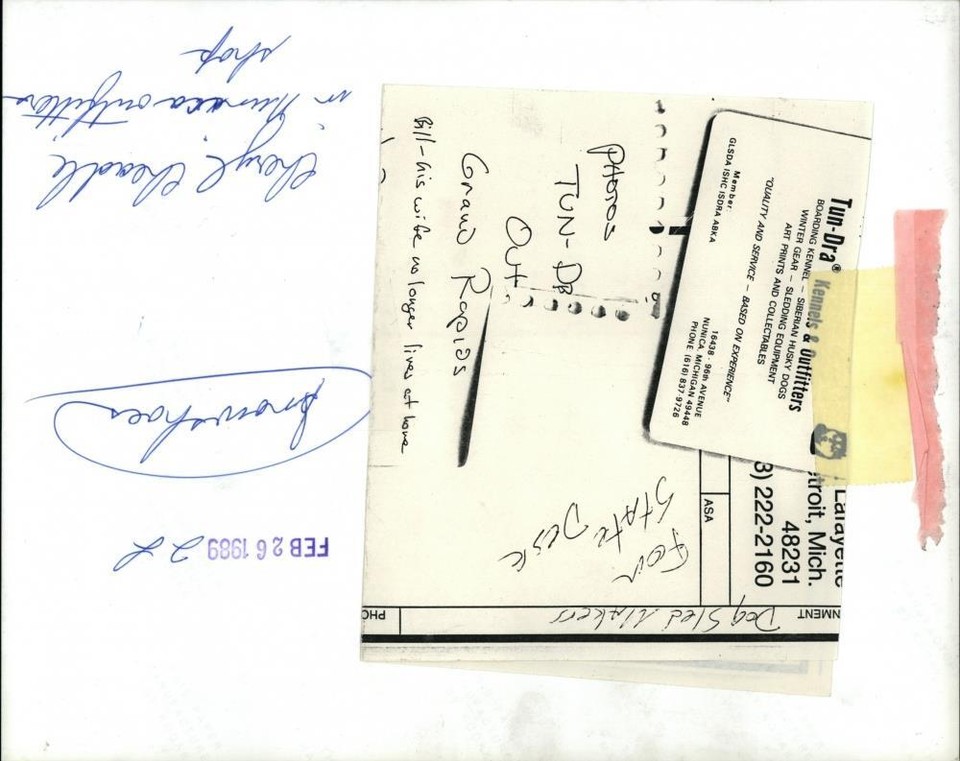 Cheryl Cheadle
in Tundra outfitters
shop
Snowshoes
FEB 26 1989
Tun-Dra® Kennels & Outfitters
BOARDING KENNEL – SIBERIAN HUSKY DOGS
WINTER GEAR – SLEDDING EQUIPMENT
ART PRINTS AND COLLECTABLES
"QUALITY AND SERVICE – BASED ON EXPERIENCE"
Member:
GLSDA ISHC ISDRA ABKA
16438 - 96th AVENUE
NUNICA, MICHIGAN 49448
PHONE (616) 837-9726
PHOTOS
TUN-DRA
Out
Grand Rapids
Bill-his wife no longer lives at home
Lafayette
troit, Mich.
48231
3) 222-2160
ASA
For
State Desk
NMENT
Dog Sled Makers
PHO